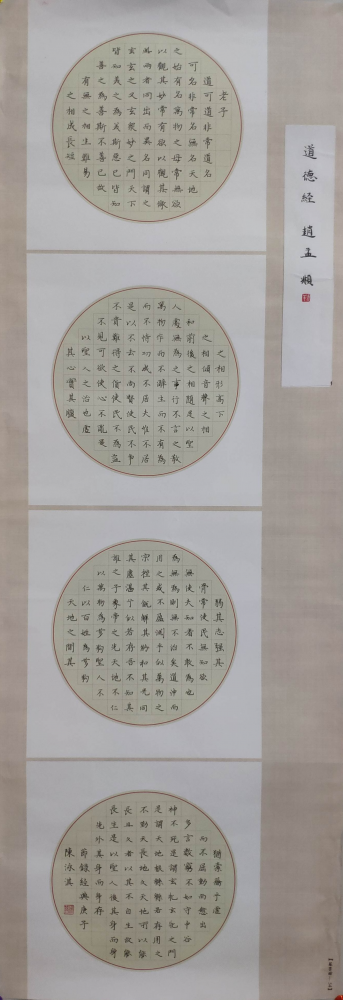 道德經 趙孟頫
老子
道可道非常道名
可名非常名無名天地
之始有名萬物之母常無欲
以觀其妙常有欲以觀其徼
此兩者同出而異名同謂之
玄玄之又玄衆妙之門天下
皆知美之為美斯惡已皆知
善之為善斯不善已故
有無之相生難易
之相成長短
之相形高下
之相傾音聲之相
和前後之相隨是以聖
人處無為之事行不言之教
萬物作而不辭生而不有為
而不恃功成不居夫惟不居
是以不去不尚賢使民不爭
不貴難得之貨使民不為盜
不見可欲使心不亂是
以聖人之治也虛
其心實其腹
弱其志強其
骨常使民無知欲
無使夫知者不敢為也
為無為則無不治矣道沖而
用之或不盈淵乎似萬物之
宗挫其銳解其紛和其光同
其塵湛兮似若存吾不知其
誰之子象帝之先天地不仁
以萬物為芻狗聖人不
仁以百姓為芻狗
天地之間其
猶橐籥乎虛
而不屈動而愈出
多言數窮不如守中谷
神不死是謂玄牝玄牝之門
是謂天地根綿綿若存用之
不勤天長地久天地所以能
長且久者以其不自生故能
長生是以聖人後其身而身
先外其身而身存
節錄經典庚子
陳泳其